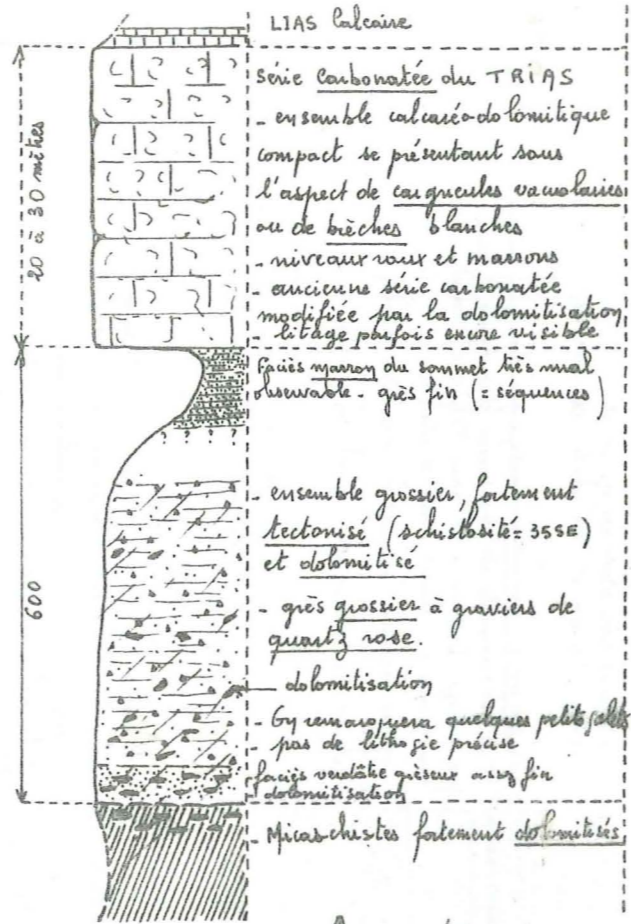 LIAS Calcaire
20 à 30 mètres
série carbonatée du TRIAS
- ensemble calcaréo-dolomitique
compact se présentant sous
l'aspect de cargneules vacuolaires
ou de brèches blanches
- niveaux roux et marrons
- ancienne série carbonatée
modifiée par la dolomitisation
- litage parfois encore visible
faciès marron du sommet très mal
observable - grès fin (= séquences)
? ? ? ?
600
- ensemble grossier, fortement
tectonisé (schistosité = 35SE)
et dolomitisé
- grès grossier à graviers de
quartz rose.
dolomitisation
- On y remarquera quelques petits galets
- pas de lithogie précise
faciès verdâtre gréseux assez fin
dolomitisation
- Micaschistes fortement dolomitisés